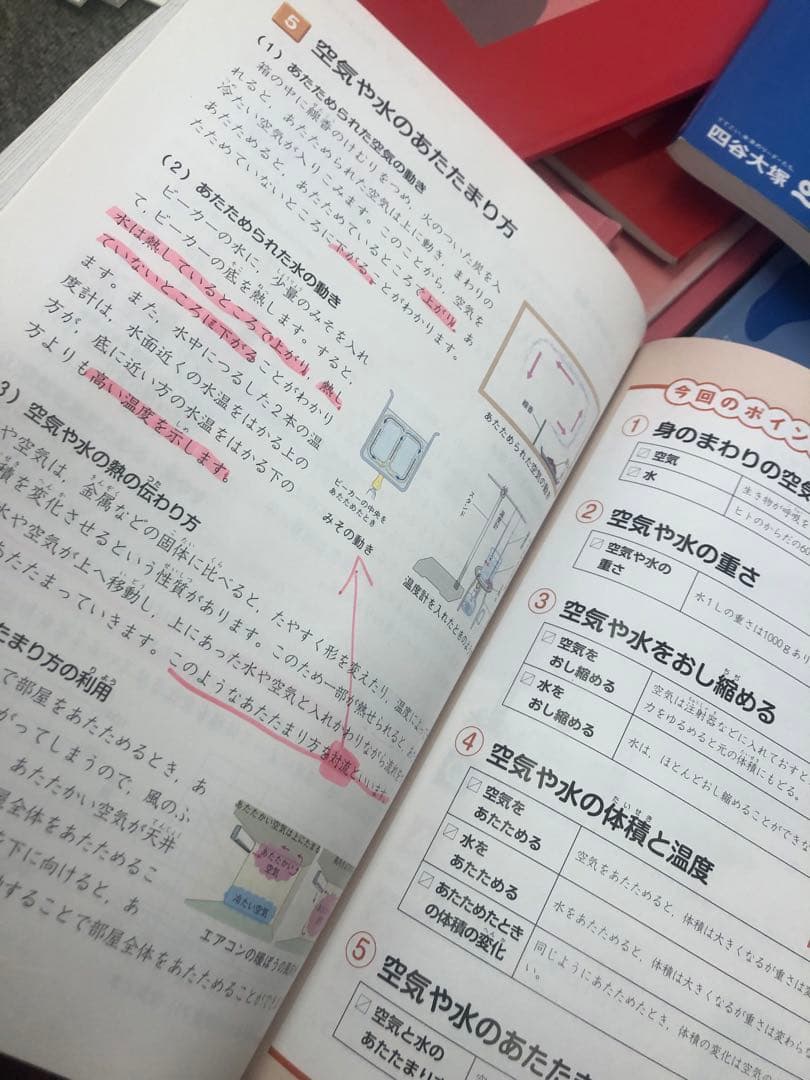 5 空気や水のあたたまり方
(1) あたためられた空気の動き
箱の中に線香のけむりをつめ、火のついた炭を入
れると、あたためられた空気は上に動き、まわりの
冷たい空気が入りこみます。このことから、空気を
あたためると、あたためているところで上がり、あ
たためていないところに下がることがわかります。
(2) あたためられた水の動き
ビーカーの水に、少量のみそを入れ
て、ビーカーの底を熱します。すると、
水は熱しているところで上がり、熱し
ていないところは下がることがわかり
ます。また、水中につるした2本の温
度計は、水面近くの水温をはかる上の
方が、底に近い方の水温をはかる下の
方よりも高い温度を示します。
線香
あたためられた空気の動き
ビーカーの中央を
あたためたとき
みその動き
スタンド
温度計
温度計を入れたときのよ
3) 空気や水の熱の伝わり方
や空気は、金属などの固体に比べると、たやすく形を変えたり、温度によっ
積を変化させるという性質があります。このため一部が熱せられると、
水や空気が上へ移動し、上にあった水や空気と入れかわりながら
あたたまっていきます。このようなあたたまり方を対流といいます。
たまり方の利用
で部屋をあたためるとき、あ
がってしまうので、風のふ
、あたたかい空気が天井
屋全体をあたためるこ
を下に向けると、あ
動することで部屋全体をあたためることができ
あたたかい空気は上にたまる
あたたかい
空気
冷たい空気
エアコンの暖ぼうの風
四谷大塚
今回のポイン
① 身のまわりの空気
空気
生き物が呼吸
水
ヒトのからだの60
② 空気や水の重さ
空気や水の
重さ
水1Lの重さは1000gあり
③ 空気や水をおし縮める
空気を
おし縮める
空気は注射器などに入れておすと
力をゆるめると元の体積にもどる。
水を
おし縮める
水は、ほとんどおし縮めることができな
④ 空気や水の体積と温度
空気を
あたためる
空気をあたためると、体積は大きくなるが重さは変
水を
あたためる
水をあたためると、体積は大きくなるが重さは変わらな
あたためたとき
の体積の変化
同じようにあたためたとき、体積の変化は空気の
い。
⑤ 空気や水のあたたま
空気と水の
あたたまり